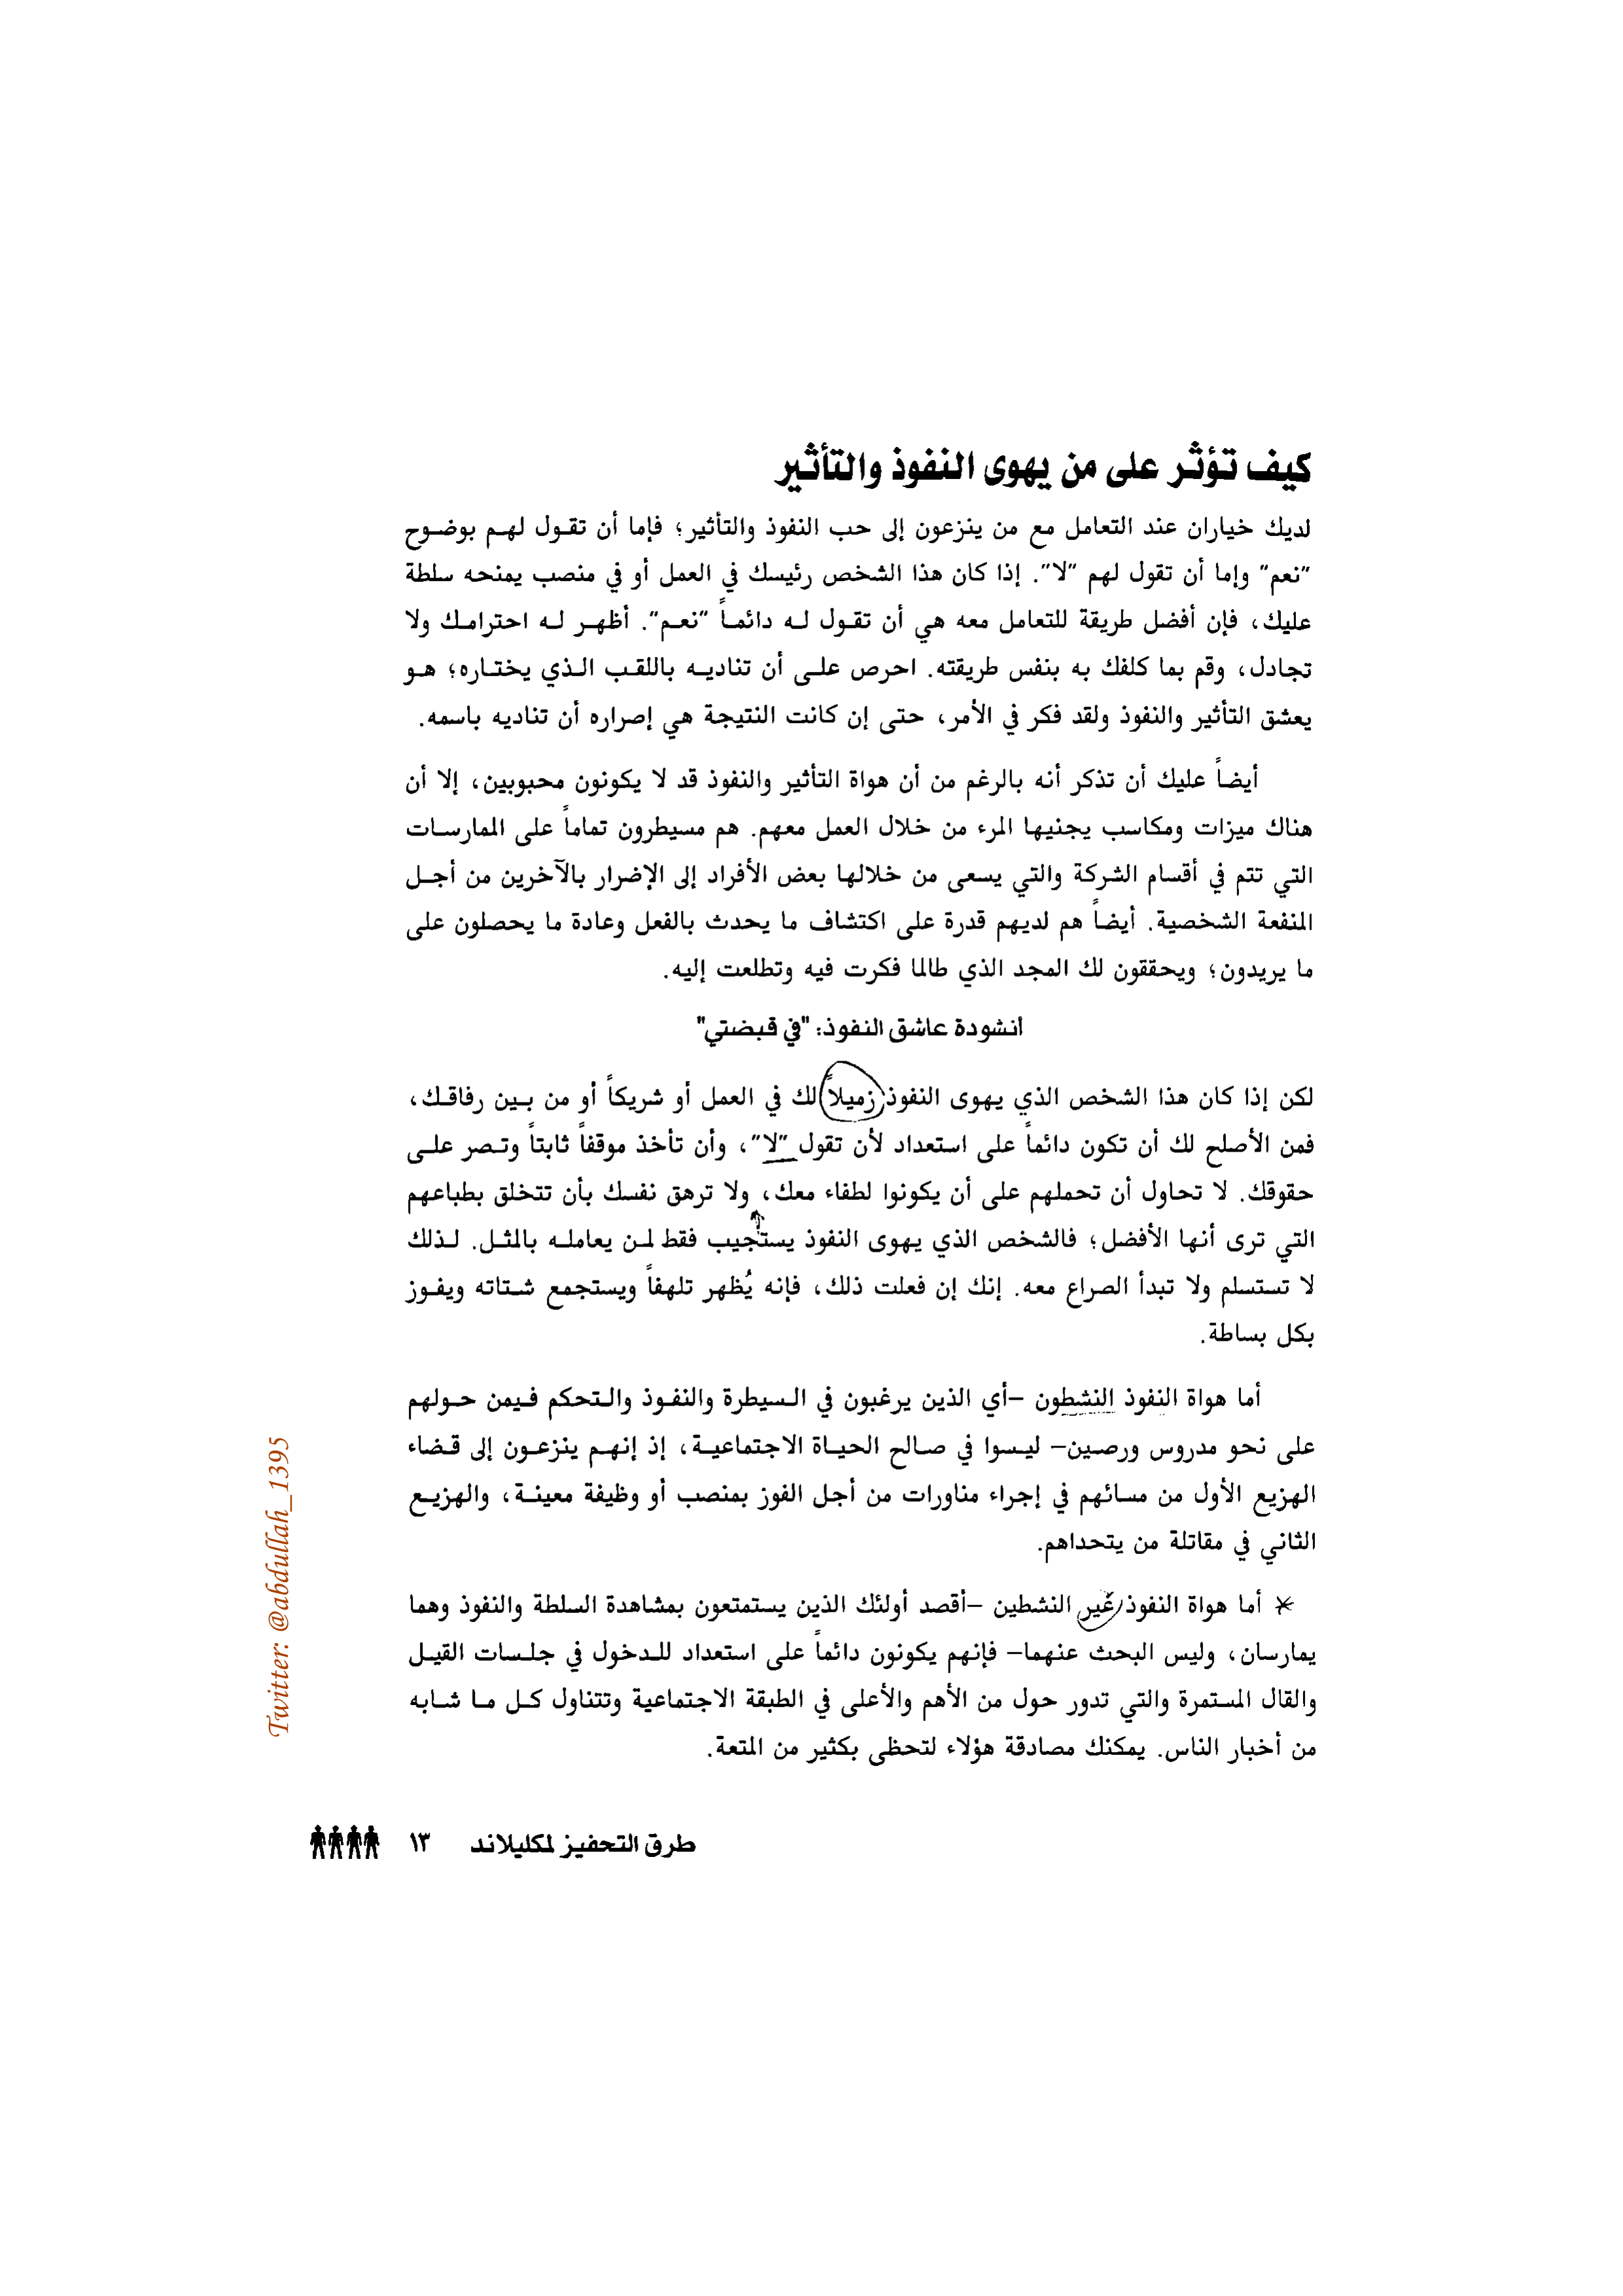 كيف تؤثر على من يهوى النفوذ والتأثير
لديك خياران عند التعامل مع من ينزعون إلى حب النفوذ والتأثير؛ فإما أن تقول لهم بوضوح
"نعم" وإما أن تقول لهم "لا". إذا كان هذا الشخص رئيسك في العمل أو في منصب يمنحه سلطة
عليك، فإن أفضل طريقة للتعامل معه هي أن تقول له دائماً "نعم". أظهر له احترامك ولا
تجادل، وقم بما كلفك به بنفس طريقته. احرص على أن تناديه باللقب الذي يختاره؛ هو
يعشق التأثير والنفوذ ولقد فكر في الأمر، حتى إن كانت النتيجة هي إصراره أن تناديه باسمه.
أيضاً عليك أن تذكر أنه بالرغم من أن هواة التأثير والنفوذ قد لا يكونون محبوبين، إلا أن
هناك ميزات ومكاسب يجنيها المرء من خلال العمل معهم. هم مسيطرون تماماً على الممارسات
التي تتم في أقسام الشركة والتي يسعى من خلالها بعض الأفراد إلى الإضرار بالآخرين من أجل
المنفعة الشخصية. أيضاً هم لديهم قدرة على اكتشاف ما يحدث بالفعل وعادة ما يحصلون على
ما يريدون؛ ويحققون لك المجد الذي طالما فكرت فيه وتطلعت إليه.
أنشودة عاشق النفوذ: "في قبضتي"
لكن إذا كان هذا الشخص الذي يهوى النفوذ زميلاً لك في العمل أو شريكاً أو من بين رفاقك،
فمن الأصلح لك أن تكون دائماً على استعداد لأن تقول "لا"، وأن تأخذ موقفاً ثابتاً وتصر على
حقوقك. لا تحاول أن تحملهم على أن يكونوا لطفاء معك، ولا ترهق نفسك بأن تتخلق بطباعهم
التي ترى أنها الأفضل؛ فالشخص الذي يهوى النفوذ يستجيب فقط لمن يعامله بالمثل. لذلك
لا تستسلم ولا تبدأ الصراع معه. إنك إن فعلت ذلك، فإنه يُظهر تلهفاً ويستجمع شتاته ويفوز
بكل بساطة.
أما هواة النفوذ النشطون –أي الذين يرغبون في السيطرة والنفوذ والتحكم فيمن حولهم
على نحو مدروس ورصين– ليسوا في صالح الحياة الاجتماعية، إذ إنهم ينزعون إلى قضاء
الهزيع الأول من مسائهم في إجراء مناورات من أجل الفوز بمنصب أو وظيفة معينة، والهزيع
الثاني في مقاتلة من يتحداهم.
* أما هواة النفوذ غير النشطين –أقصد أولئك الذين يستمتعون بمشاهدة السلطة والنفوذ وهما
يمارسان، وليس البحث عنهما– فإنهم يكونون دائماً على استعداد للدخول في جلسات القيل
والقال المستمرة والتي تدور حول من الأهم والأعلى في الطبقة الاجتماعية وتتناول كل ما شابه
من أخبار الناس. يمكنك مصادقة هؤلاء لتحظى بكثير من المتعة.
طرق التحفيز لمكليلاند ١٣
Twitter: @abdullah_1395